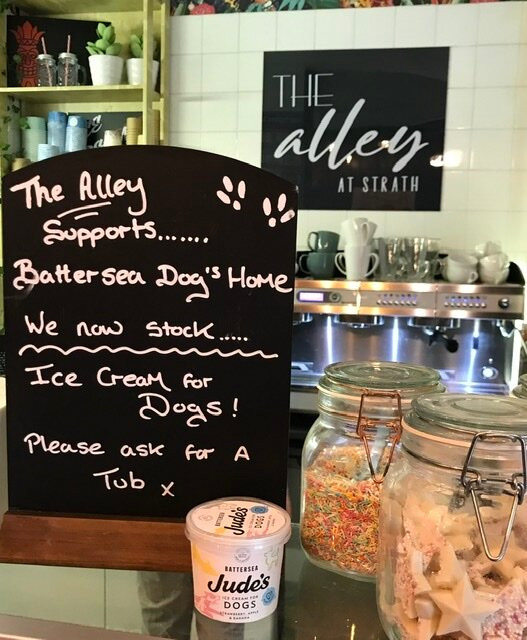 THE
alley
AT STRATH
The Alley
Supports.......
Battersea Dog's Home
We now stock.....
Ice Cream for
Dogs!
Please ask for A
Tub x
Jude's
DOGS
BATTERSEA
Jude's
ICE CREAM FOR
DOGS
STRAWBERRY, APPLE
& BANANA